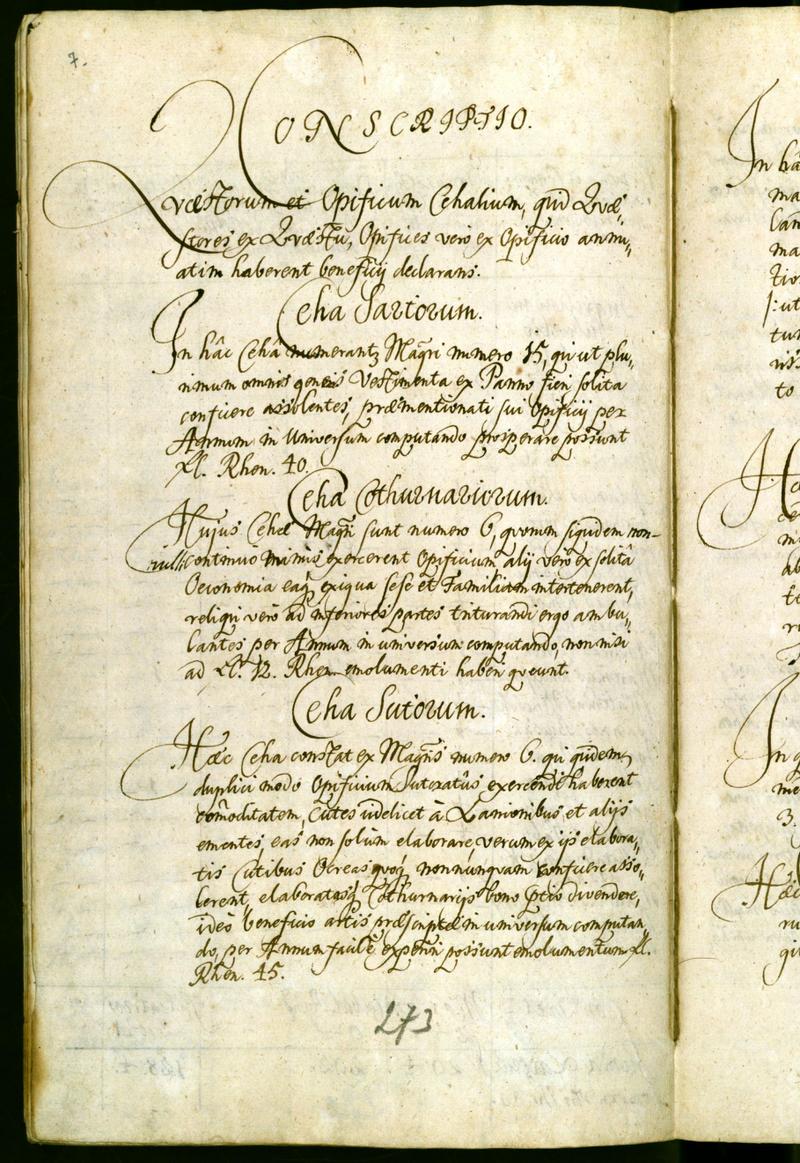 7.
CONSCRIPTIO.
Qvæstorum et Opificum Cehalium, quid Qvæ„
stores ex Qvæstu, Opifices vero ex Opificio annu„
atim haberent beneficij declarans.
Ceha Sartorum.
In hâc Cehâ numerantz Magri numero 15, qui ut plu„
rimum omnis generis Vestimenta ex Panno fieri solita
conficere assolentes, præmentionati sui Opificij per
Annum in Universum computando prosperare possunt
xfl. Rhen. 40.
Ceha Cothurnariorum.
Hujus Cehæ Magri sunt numero 6, quorum siquidem non-
nulli continuo minus exercerent Opificium, alij vero ex solitâ
Oeconomia eaq exigua sese et Familiam intertenerent,
reliqui vero ad inferiores partes triturandi ergo ambu„
lantes per Annum in universum computando, non nisi
ad xfl. 12. Rhen. emolumenti haberi qveunt.
Ceha Sutorum.
Hæc Ceha constat ex Magris numero 6. qui quidem
duplici modo Opificium Sutoratûs exercendi haberent
com̃oditatem, Cutes videlicet à Lanionibus et alijs
ementes, eas non solùm elaborare, verum ex ijs elabora„
tis Cutibus Ocreas quoq nonnunquam conficere asso„
lerent, elaboratasq Cothurnarijs bono ptio divendere,
ideò beneficio artis præscriptæ in universum computan„
do, per Annum facilè experiri possunt emolumentum xfl.
Rhen. 45.
273
In
ma
3.
Hæc
ru